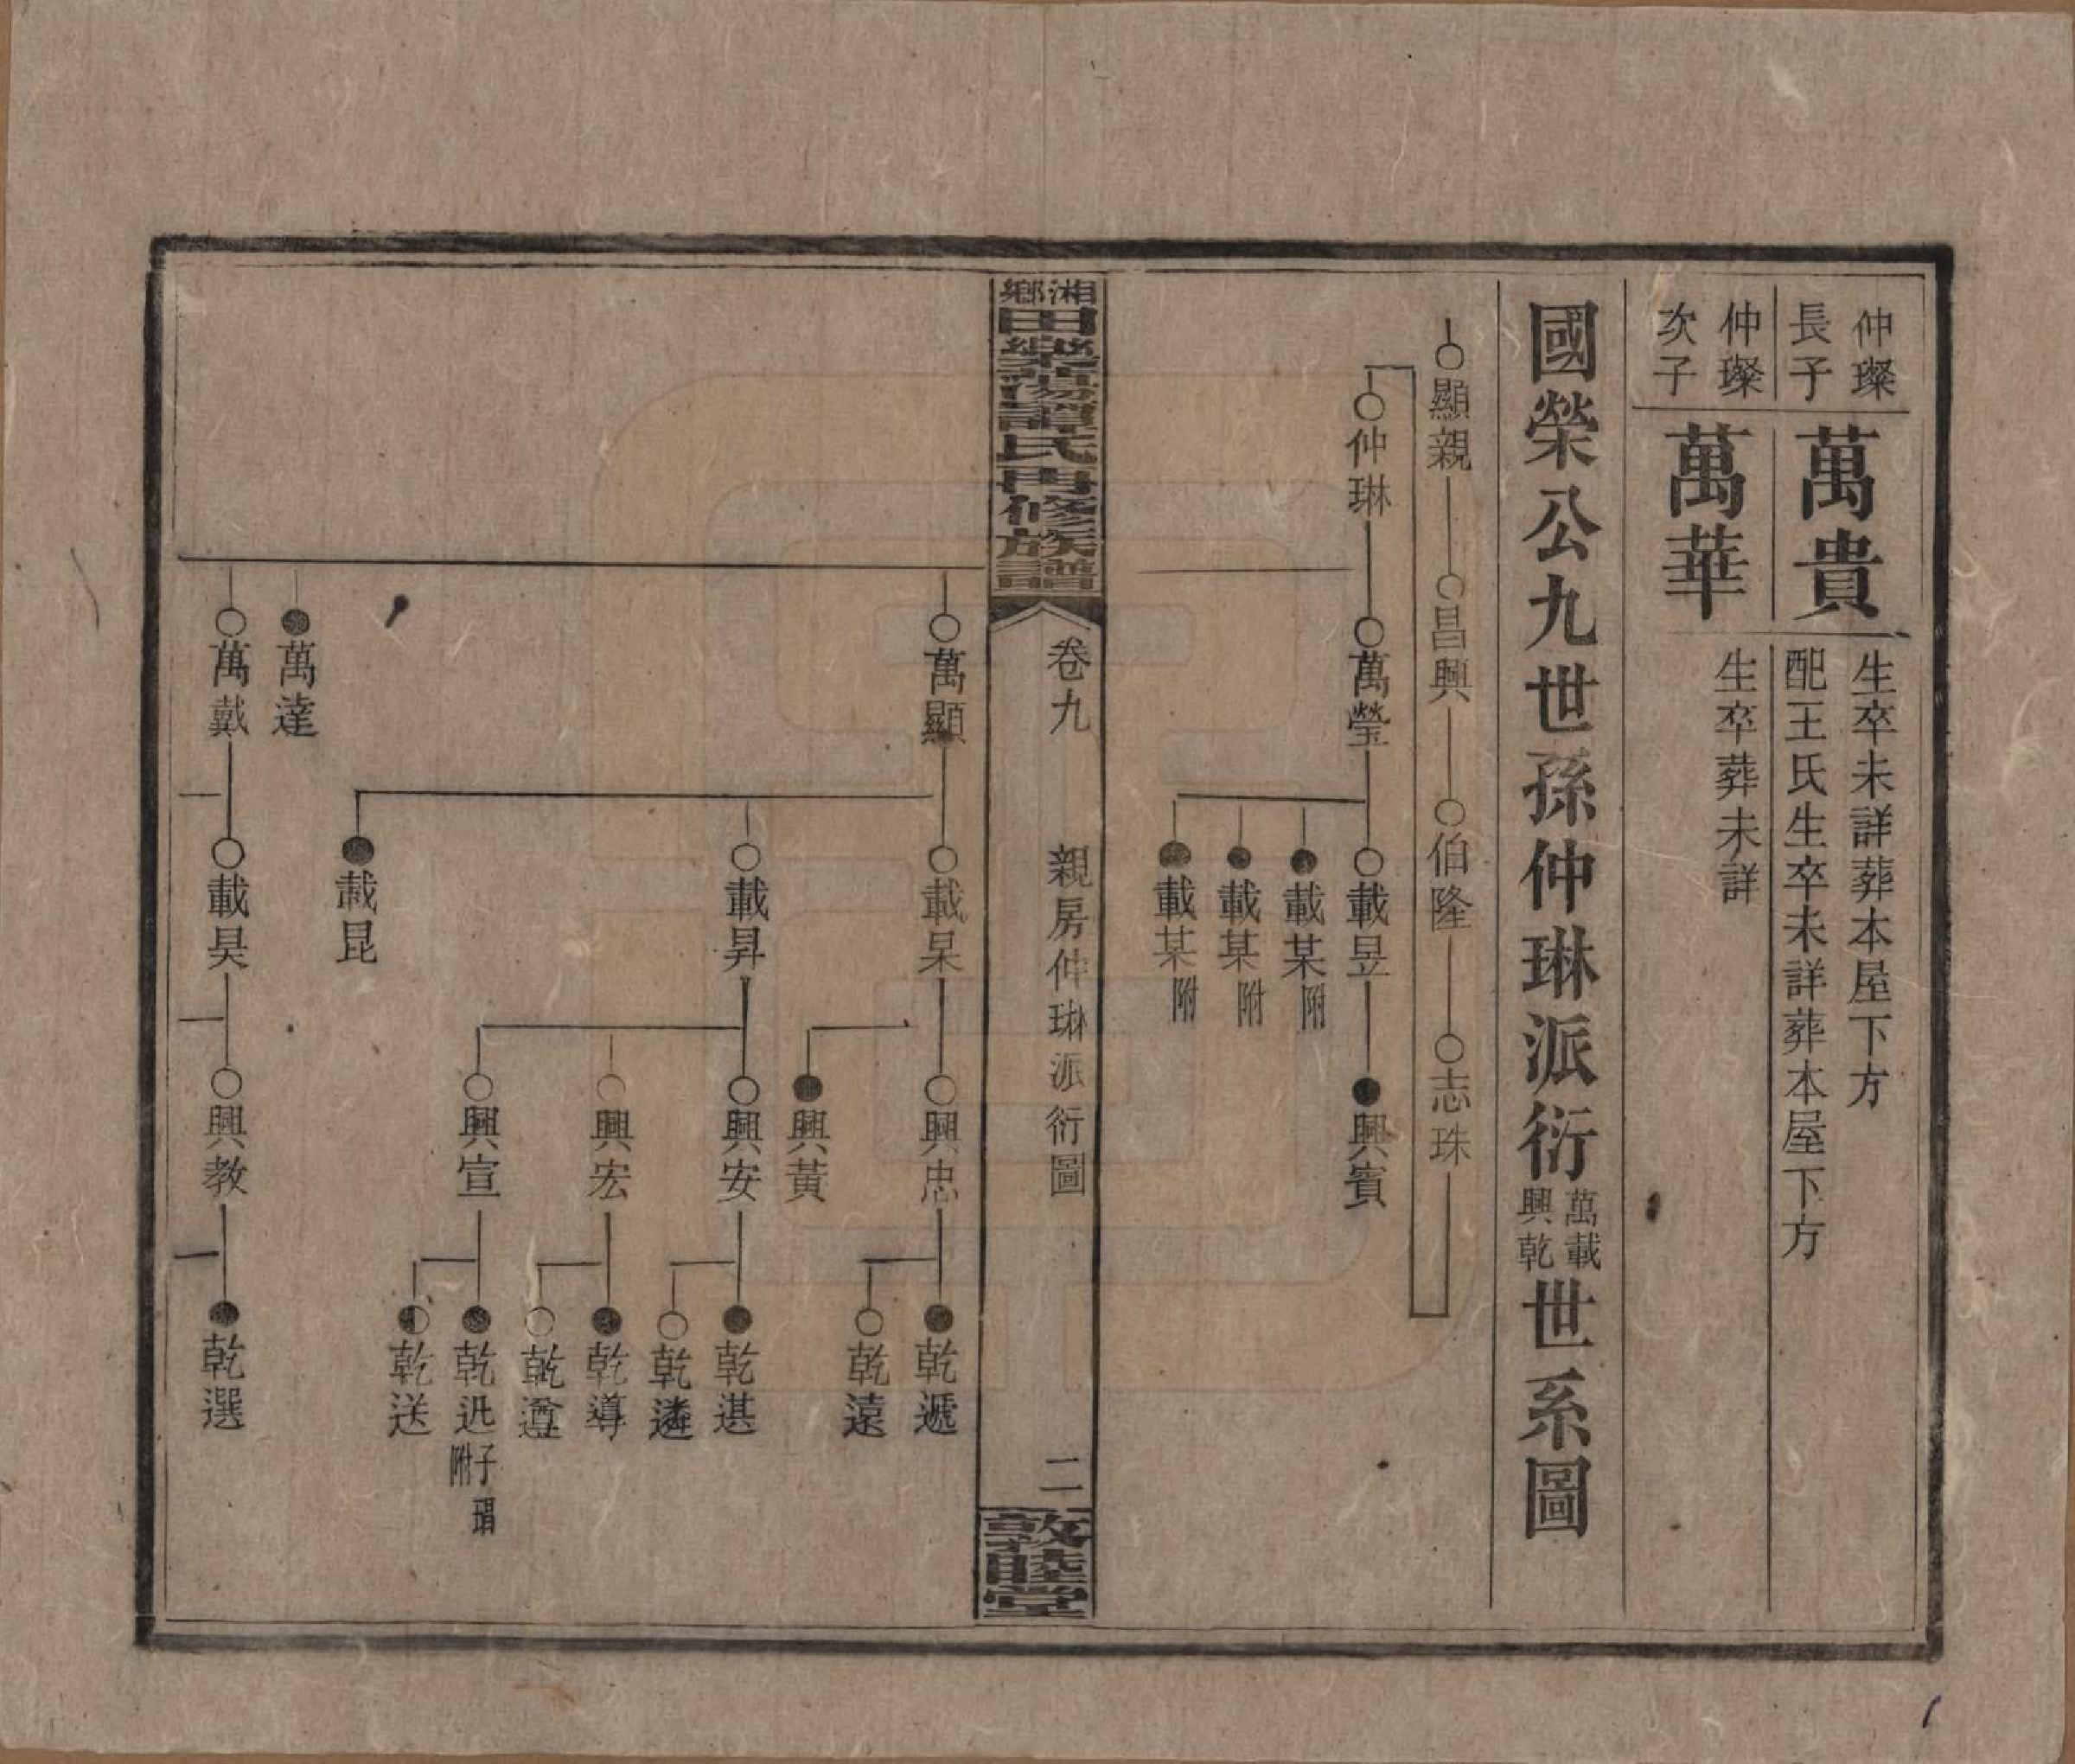 仲璨
長子
萬貴
生卒未詳葬本屋下方
配王氏生卒未詳葬本屋下方
仲璨
次子
萬華
生卒葬未詳
國榮公九世孫仲琳派衍萬載興乾世系圖
顯親
昌興
伯隆
志珠
仲琳
萬瑩
載昱
興賓
載某附
載某附
載某附
湘鄉田樂蕩譚氏再修族譜
卷九
親房仲琳派衍圖
二
敦睦堂
萬顯
載杲
興忠
乾遞
乾遠
興黃
載昇
興安
乾遴
興宏
乾導
興宣
乾迅
附子瑁
乾送
載昆
萬達
萬戴
載昊
興教
乾選